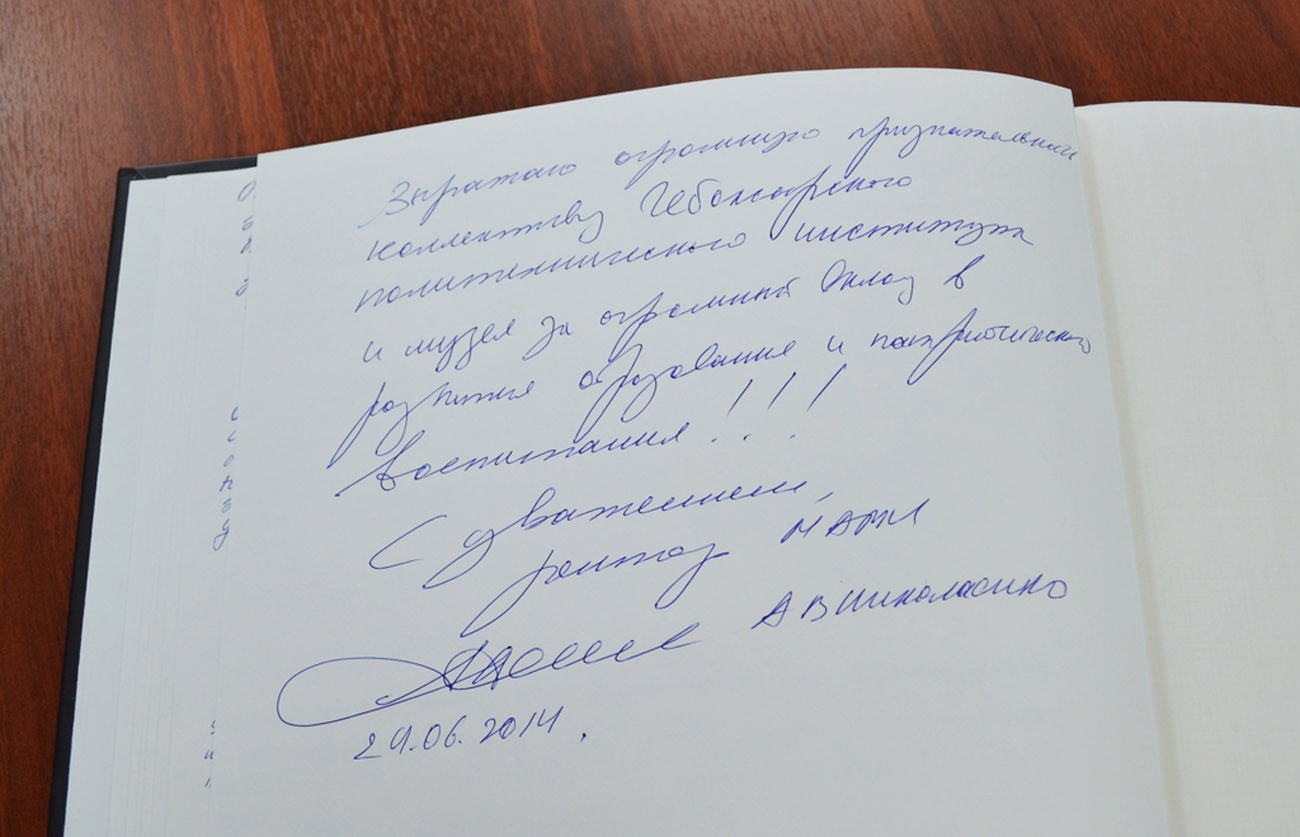 Выражаю огромную признательность
коллективу Чебоксарского
политехнического института
и музея за огромный вклад в
развития образования и патриотического
воспитания!!!
С уважением,
ректор МАМИ
А В Николаенко
29.06.2014.